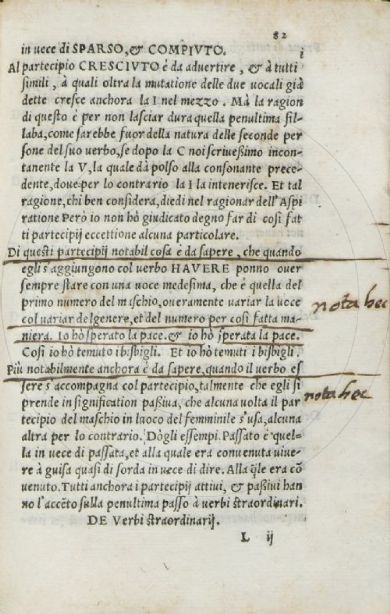 82
in uece di SPARSO, & COMPIVTO.
Al partecipio CRESCIVTO è da aduertire, & à tutti i
simili, à quali oltra la mutatione delle due uocali già
dette cresce anchora la I nel mezzo. Mà la ragion
di questo è per non lasciar dura quella penultima sil-
laba, come sarebbe fuor della natura delle seconde per
sone del suo uerbo, se dopo la C noi scriuessimo incon-
tanente la V, la quale dà polso alla consonante prece-
dente, doue per lo contrario la I la intenerisce. Et tal
ragione, chi ben considera, diedi nel ragionar dell'Aspi
ratione Però io non hò giudicato degno far di così fat
ti partecipij eccettione alcuna particolare.
Di questi partecipij notabil cosa è da sapere, che quando
egli s'aggiungono col uerbo HAVERE ponno ouer
sempre stare con una uoce medesima, che è quella del
primo numero del maschio, oueramente uariar la uoce
col uariar del genere, et del numero per così fatta ma-
niera. Io hò sperato la pace. & io hò sperata la pace.
Così io hò temuto i bisbigli. Et io hò temuti i bisbigli.
Più notabilmente anchora è da sapere, quando il uerbo es
sere s'accompagna col partecipio, talmente che egli si
prende in signification passiua, che alcuna uolta il par
tecipio del maschio in luoco del femminile s'usa, alcuna
altra per lo contrario. Dògli essempi. Passato è quel-
la in uece di passata, et alla quale era conuenuta uiue-
re à guisa quasi di sorda in uece di dire. Alla q̃le era cō
uenuto. Tutti anchora i partecipij attiui, & passiui han
no l'accēto sulla penultima passo à uerbi straordinari.
DE Verbi straordinarij.
L ij
nota hec
nota hec